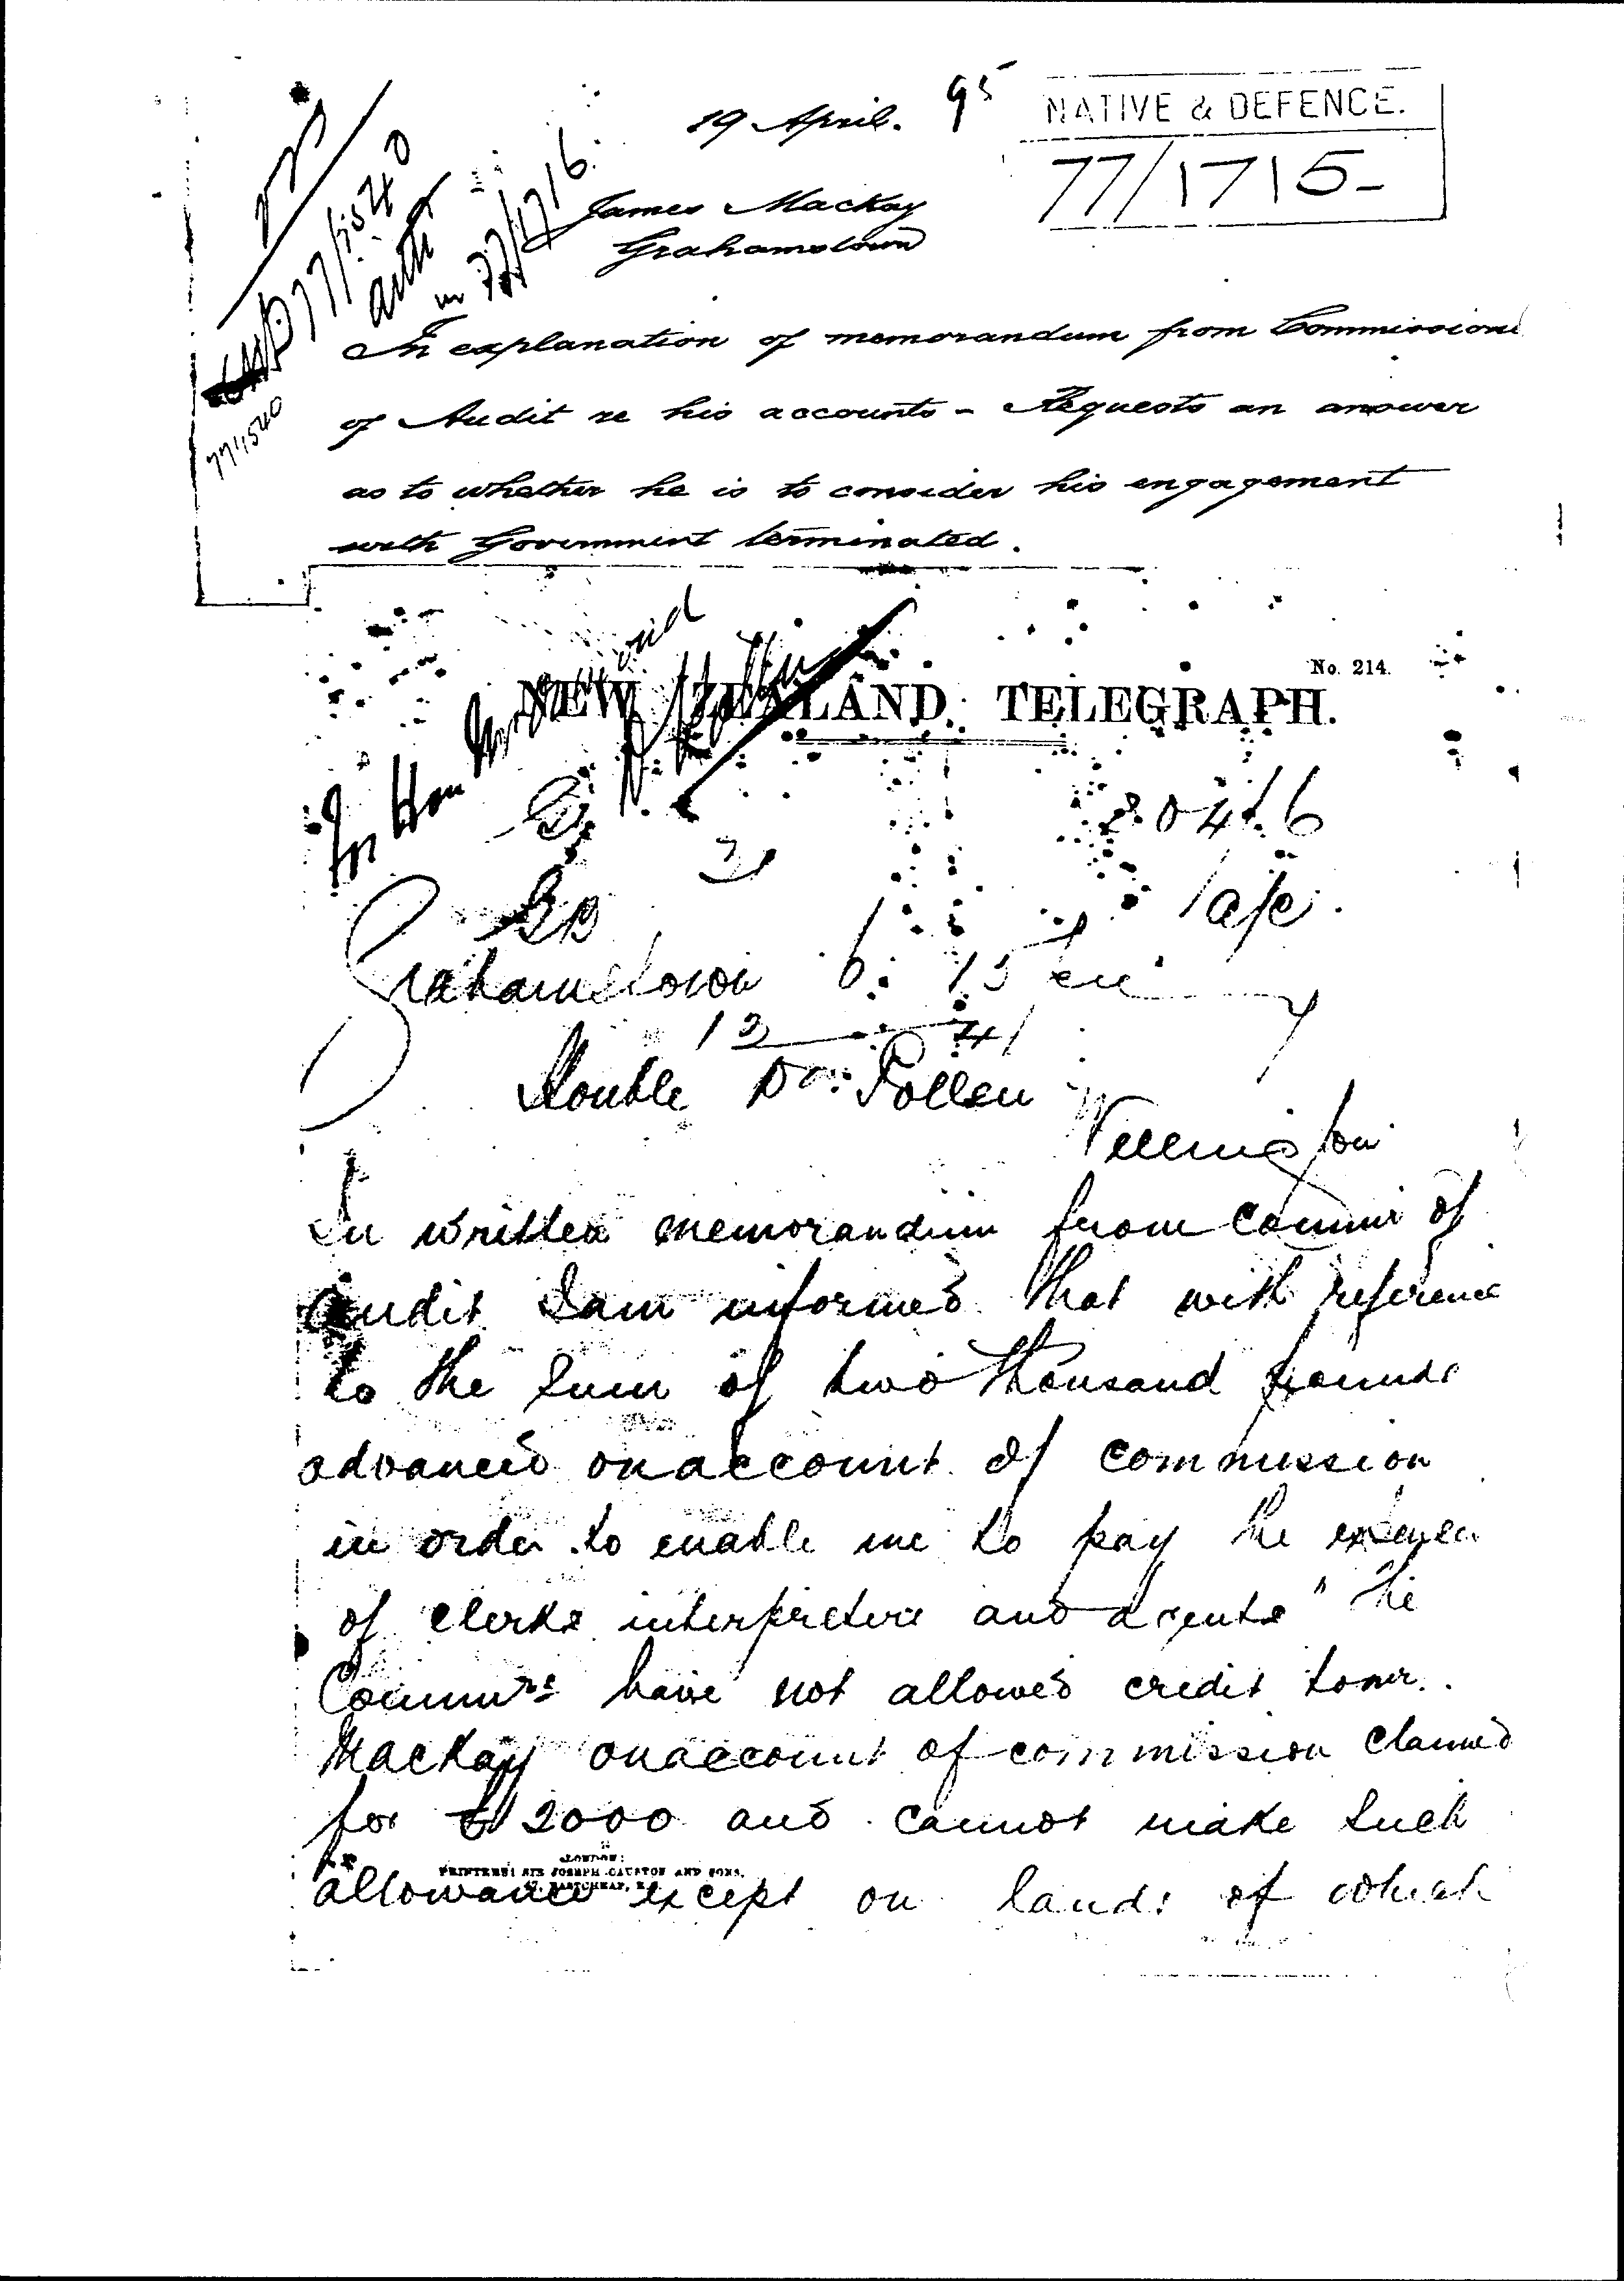 19 April.
95
NATIVE & DEFENCE.
77/1715-
James Mackay
Grahamstown
77/1540
77/1716.
77/1540
In explanation of memorandum from Commissione
of Audit re his accounts - Requests an answer
as to whether he is to consider his engagement
with Government terminated.
No. 214.
NEW ZEALAND TELEGRAPH.
Grahamstown 6. 15
12 41
Honble Dr. Pollen
Wellington
In written memorandum from Commr of
audit I am informed that with reference
to the sum of two thousand pounds
advanced on account of commission
in order to enable me to pay the
of clerks interpreters and agents " the
Commrs have not allowed credit to mr.
Mackay on account of commission claimed
for £2000 and cannot make such
LONDON:
PRINTERS: SIR JOSEPH CAUSTON AND SONS,
allowance except on lands of which